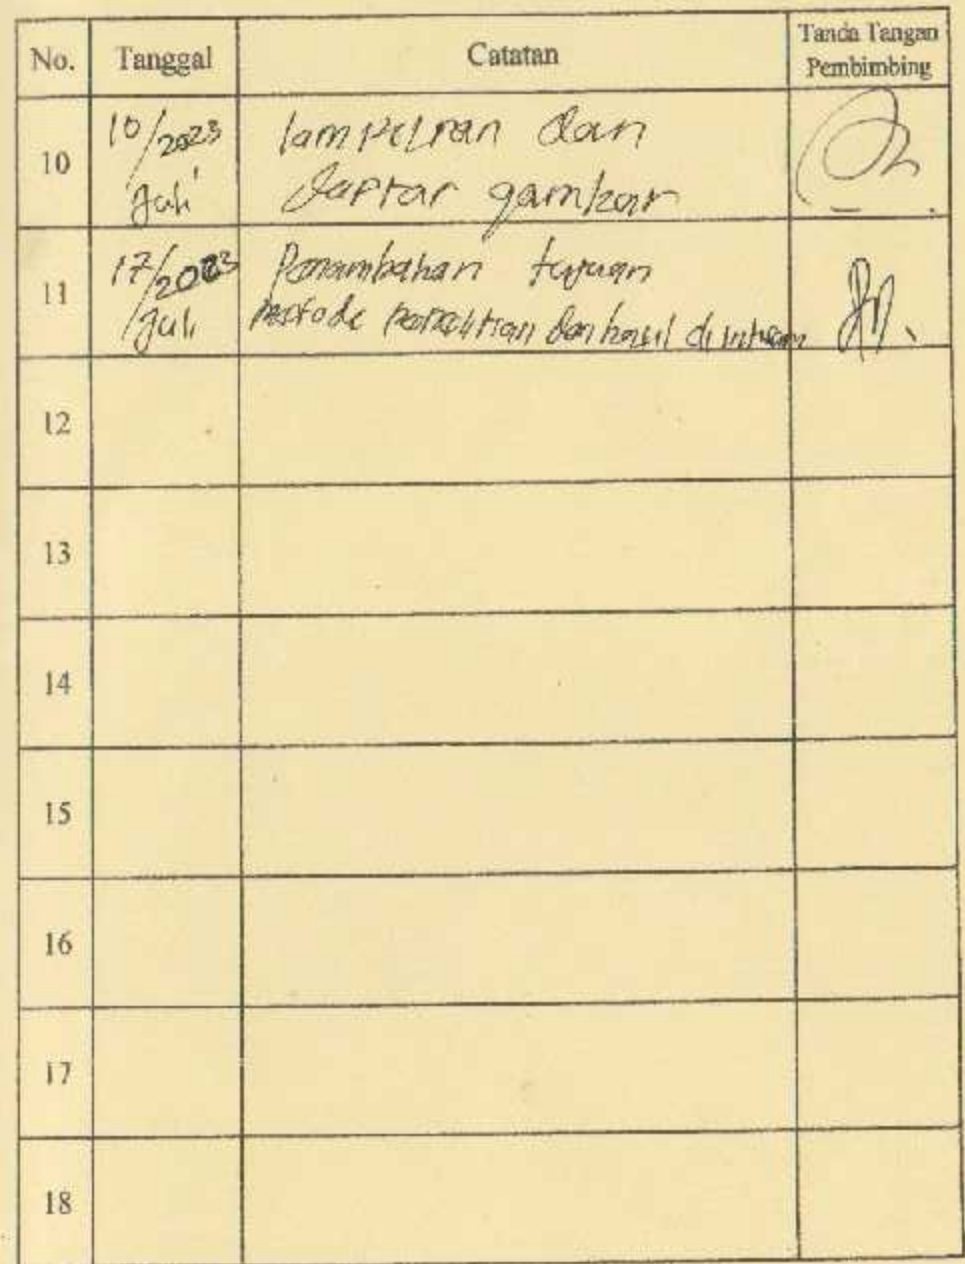 No. Tanggal Catatan Tanda Tangan
Pembimbing
10 10/2023 lampiran dan
Juli daftar gambar
11 17/2023 Penambahan tujuan
Juli metode penelitian dan hasil di
12
13
14
15
16
17
18